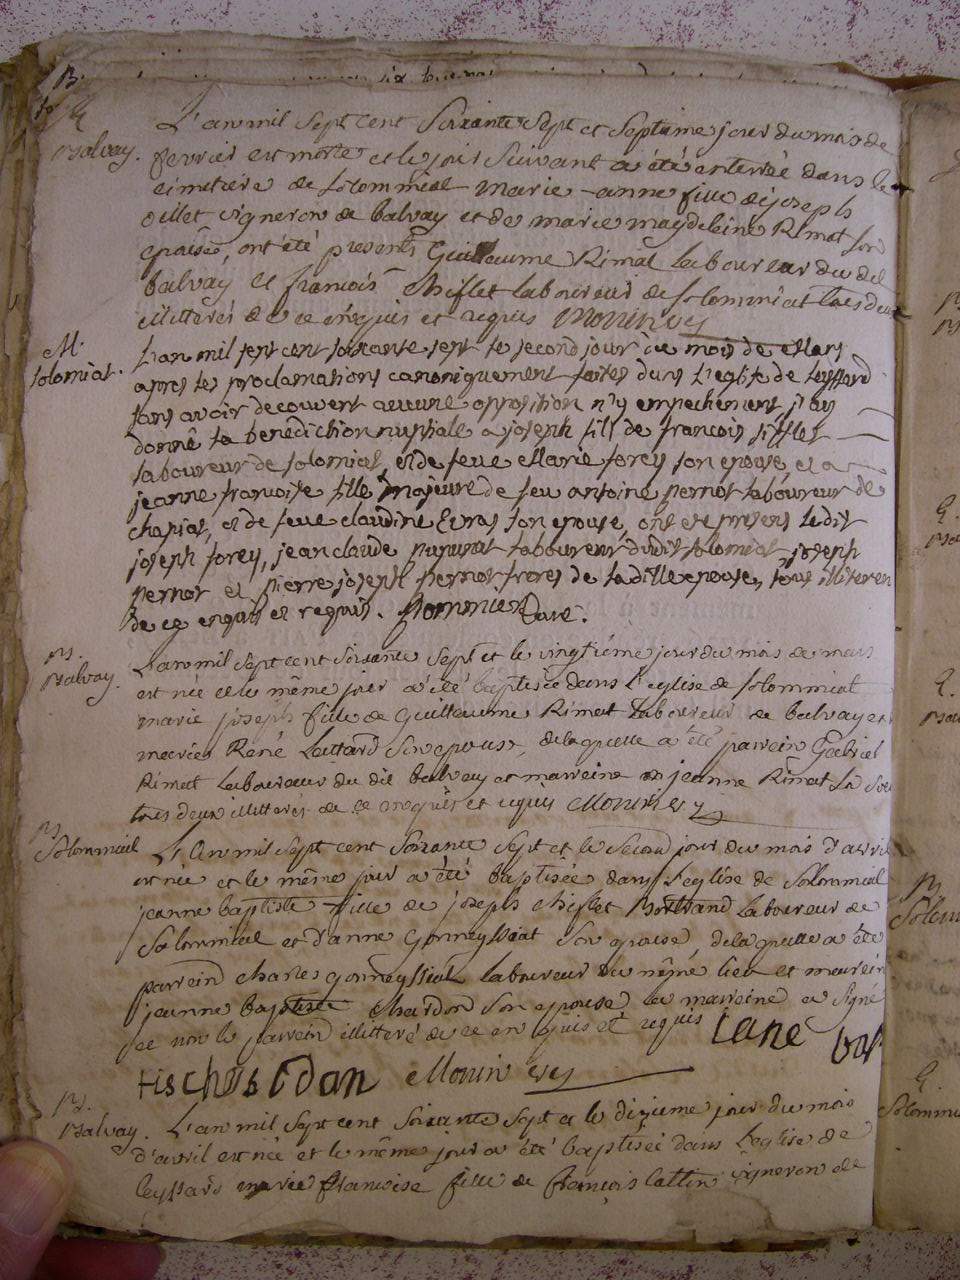 B.
S
Balvay.
L'an mil sept cent soixante sept et septieme jour du mois de
fevrier est morte et le jour suivant a été enterrée dans le
cimetiere de solommiat marie-anne fille de joseph
oillet vigneron de balvay et de marie magdeleine Rimat son
epouse, ont été presents Guillaume Rimat laboureur du dit
balvay et francois chiflet laboureur de solommiat tous deux
illitterés de ce enquis et requis Monin vy
M.
solomiat.
L'an mil sept cent soixante sept le second jour du mois de Mars
apres les proclamations canoniquement faites dans l'eglise de leyssard
sans avoir decouvert aucune opposition n'y empechement j'ay
donné la benediction nuptiale a joseph fils de francois sifflet
laboureur de solomiat, et de feue Marie forey son epouse, et a
jeanne francoise fille majeure de feu antoine pernot laboureur de
chapiat, et de feue claudine Evras son epouse, ont été presens ledit
joseph forey, jean claude laboureur dudit solomiat, joseph
pernot et pierre joseph pernot freres de ladille epouse, tous illiteren
de ce enquis et requis. Pommier curé.
B.
Balvay.
L'an mil sept cent soixante sept et le vingtiéme jour du mois de mars
est née et le même jour a été baptisée dans l'eglise de solommiat
marie joseph fille de Guilleaume Rimat laboureur de balvay et
René Lettard son epouse, de laquelle a été parrein Gabriel
Rimat laboureur du dit balvay et marreine jeanne Rimat la
tous deux illitterés de ce enquis et requis Monin vy
B.
Solommiat
L'an mil sept cent soixante sept et le second jour du mois d'avril
est née et le même jour a été baptisée dans l'eglise de solommiat
jeanne baptiste fille de joseph chiflet Bertrand laboureur de
Solommiat et d'anne Gonneyssiat son epouse, de laquelle a été
parrein charle gonneyssiat laboureur du même lieu et marrein
jeanne baptiste chardon son epouse la marreine a signé
et non le parrein illitteré de ce enquis et requis iane bat
tis chasrdan Monin vy
B.
Balvay.
L'an mil sept cent soixante sept et le dixieme jour du mois
d'avril est née et le même jour a été baptisée dans l'eglise de
leyssard marie francoise fille de francois lattin vigneron de